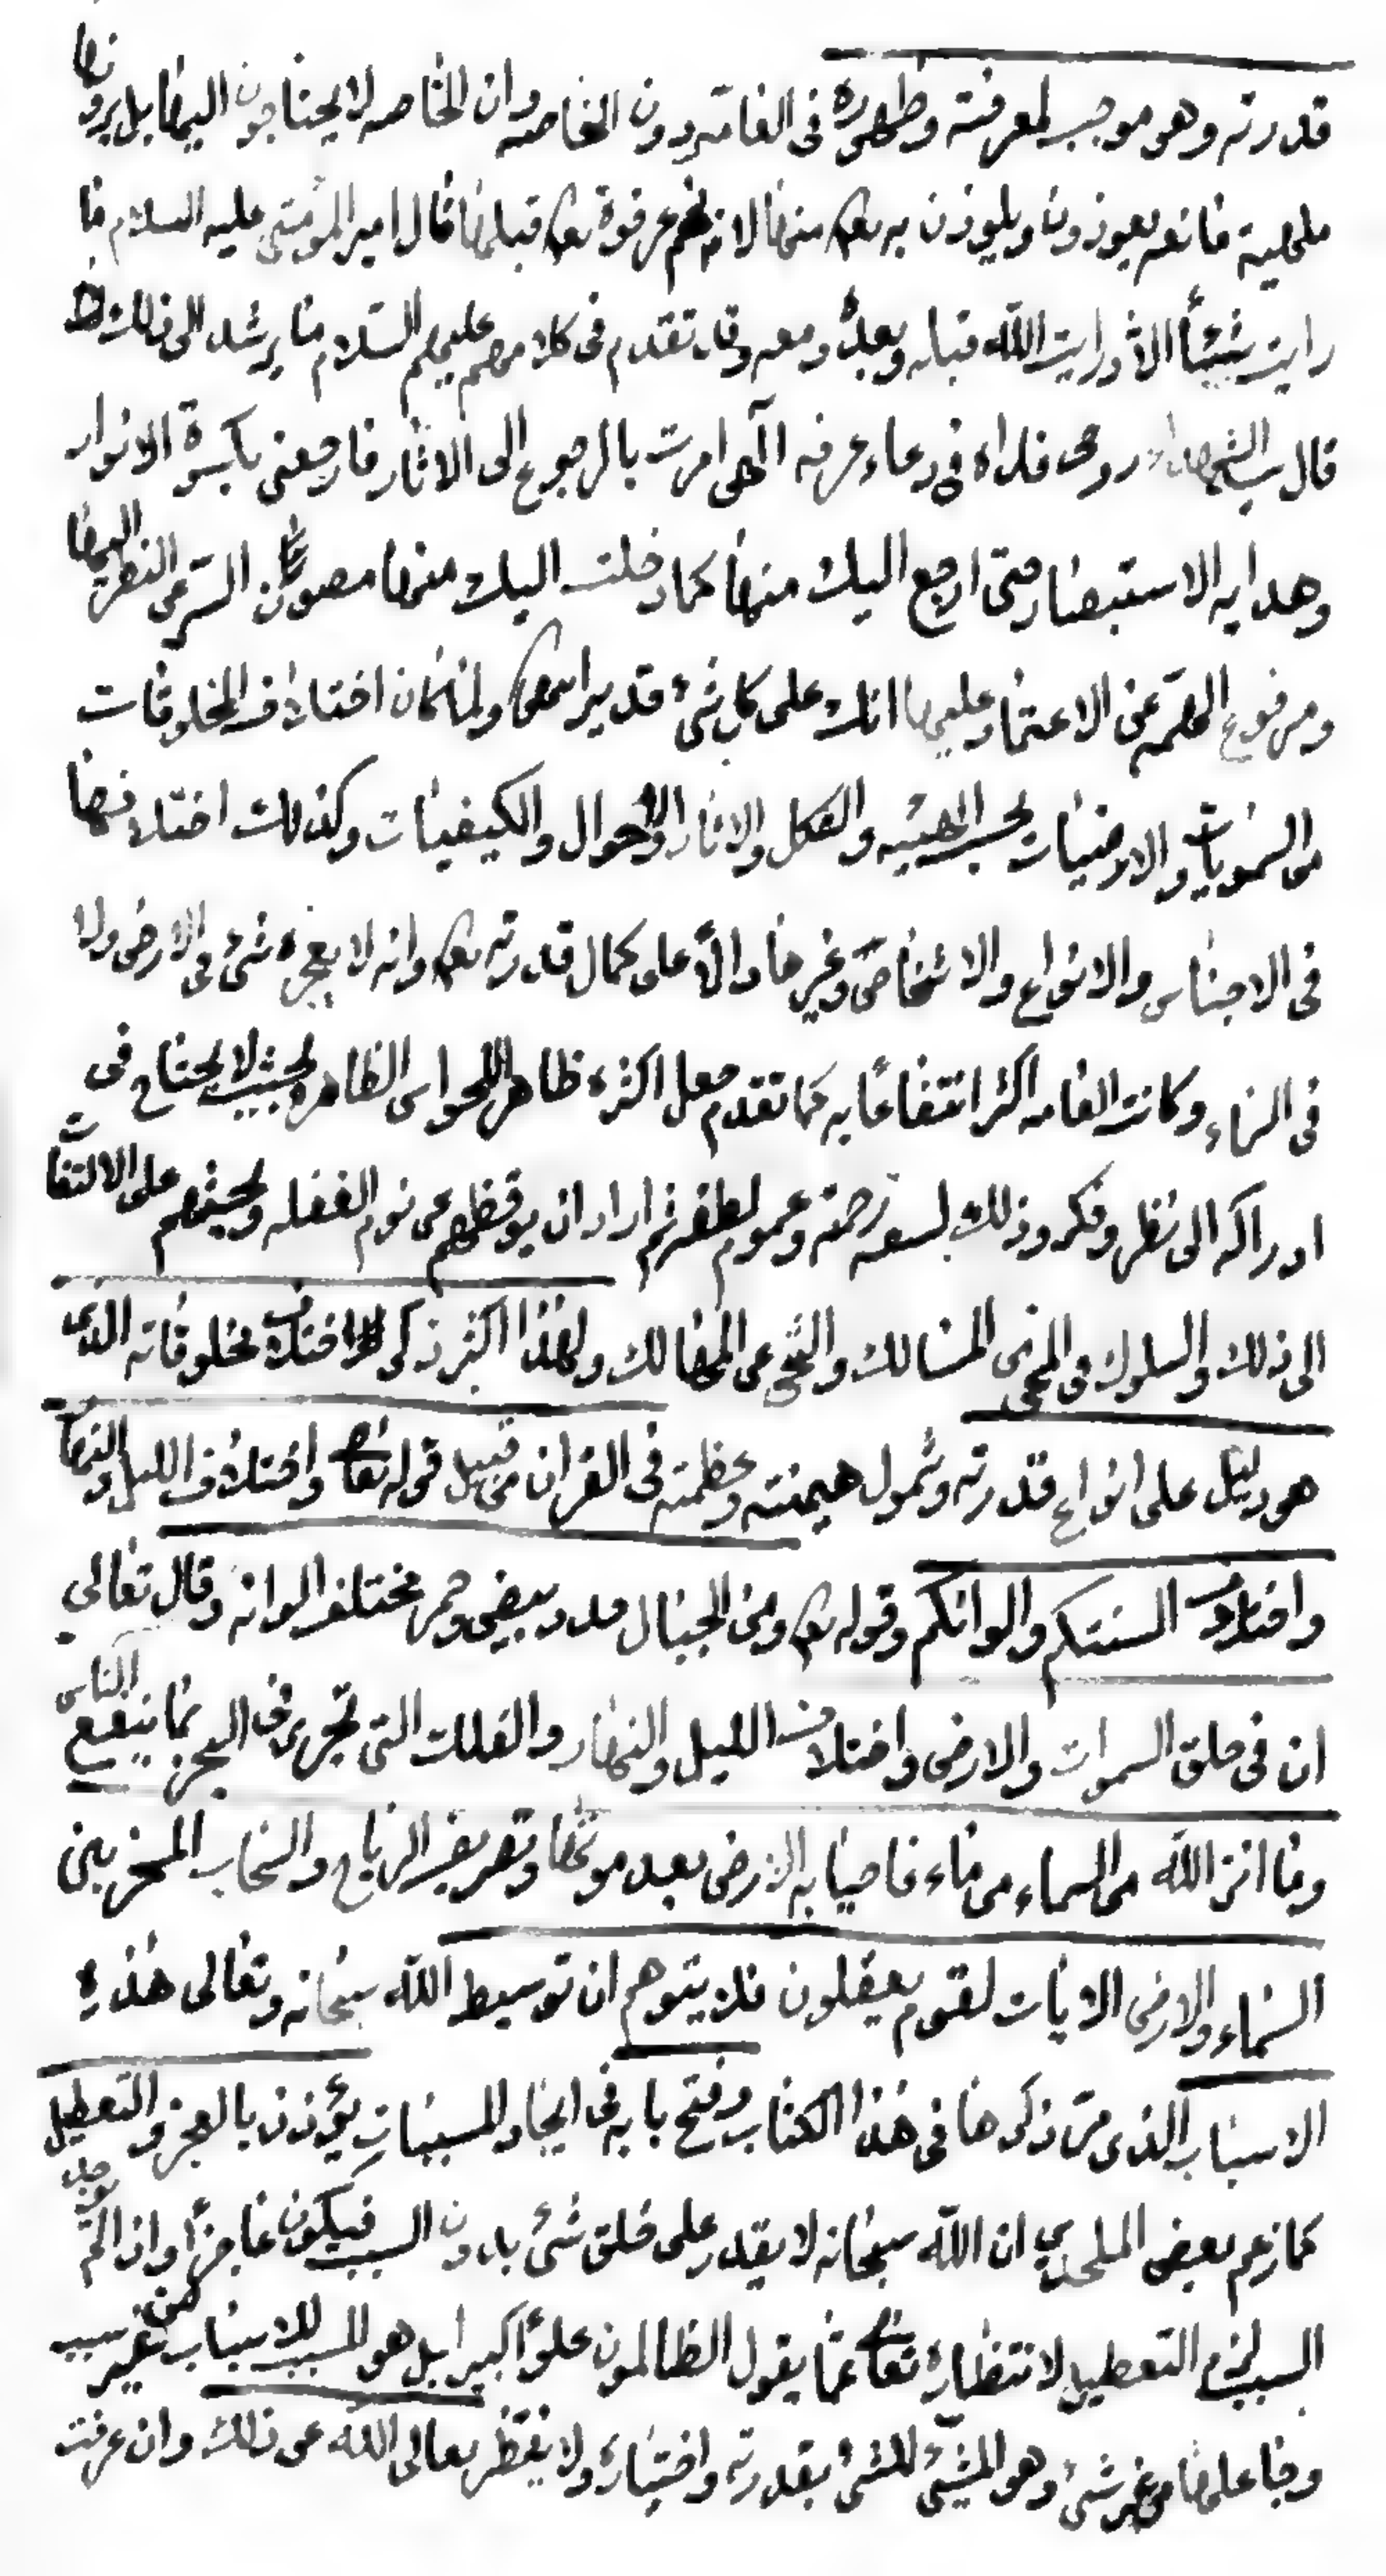 قدرته وهو موجب لمعرفته وظهوره فى العامه دون الخاصه وان الخاصه لا يحتاجون اليها بل يرونها
ملهية فانهم يعوذون ويلوذون به تعالى منها لانهم عرفوه تعالى قبلها قال امير المؤمنين عليه السلام ما
رايت شيئاً الا ورايت الله قبله وبعده ومعه وقد تقدم فى كلامهم عليهم السلام ما يرشد الى ذلك
قال سيد الشهداء روحى فداه فى دعاء عرفه الهى امرت بالرجوع الى الاثار فارجعنى بكسوة الانوار
وهدايه الاستبصار حتى ارجع اليك منها كما دخلت اليك منها مصون السر عن النظر اليها
ومرفوع الهمه عن الاعتماد عليها انك على كل شئ قدير انتهى ولما كان اختلاف المخلوقات
من السمويات والارضيات بحسب الهيئه والشكل والاثار والاحوال والكيفيات وكذلك اختلافها
فى الاجناس والانواع والاشخاص وغيرها دالّا على كمال قدرته تعالى وانه لا يعجزه شئ فى الارض ولا
فى السماء وكانت العامه اكثر انتفاعا به كما تقدم جعل اكثره ظاهرا للحواس الظاهره بحيث لا يحتاج فى
ادراكه الى نظر وفكر وذلك لسعه رحمته وعموم لطفه ثم اراد ان يوقظهم عن نوم الغفله ويحثهم على الالتفات
الى ذلك والسلوك فى المسالك والنجى عن المهالك ولهذا اكثر ذكر اختلاف مخلوقاته الذى
هو دليل على انواع قدرته وشمول هيمنته وعظمته فى القران من قبيل قوله تعالى واختلاف الليل والنهار
واختلاف السنتكم والوانكم وقوله تعالى ومن الجبال جدد بيض وحمر مختلف الوانه وقال تعالى
ان فى خلق السموات والارض واختلاف الليل والنهار والفلك التى تجرى فى البحر بما ينفع الناس
وما انزل الله من السماء من ماء فاحيا به الارض بعد موتها وتصريف الرياح والسحاب المسخر بين
السماء والارض لايات لقوم يعقلون فلا يتوهم ان توسيط الله سبحانه وتعالى هذه
الاسباب الذى مر ذكرها فى هذا الكتاب وفتح بابه فى ايجاد المسببات يؤذن بالعجز والتعطيل
كما زعم بعض الملحدين ان الله سبحانه لا يقدر على خلق شئ بدون السبب فيكون عاجزاً واذا لم يوجد
السبب لزم التعطيل لانتظاره تعالى عما يقول الظالمون علوّا كبيرا بل هو المسبب للاسباب من غير سبب
وجاعلها من غير شئ وهو المشيّئ للشئ بقدرته واختياره ولا ينتظر تعالى الله عن ذلك وان عرفت